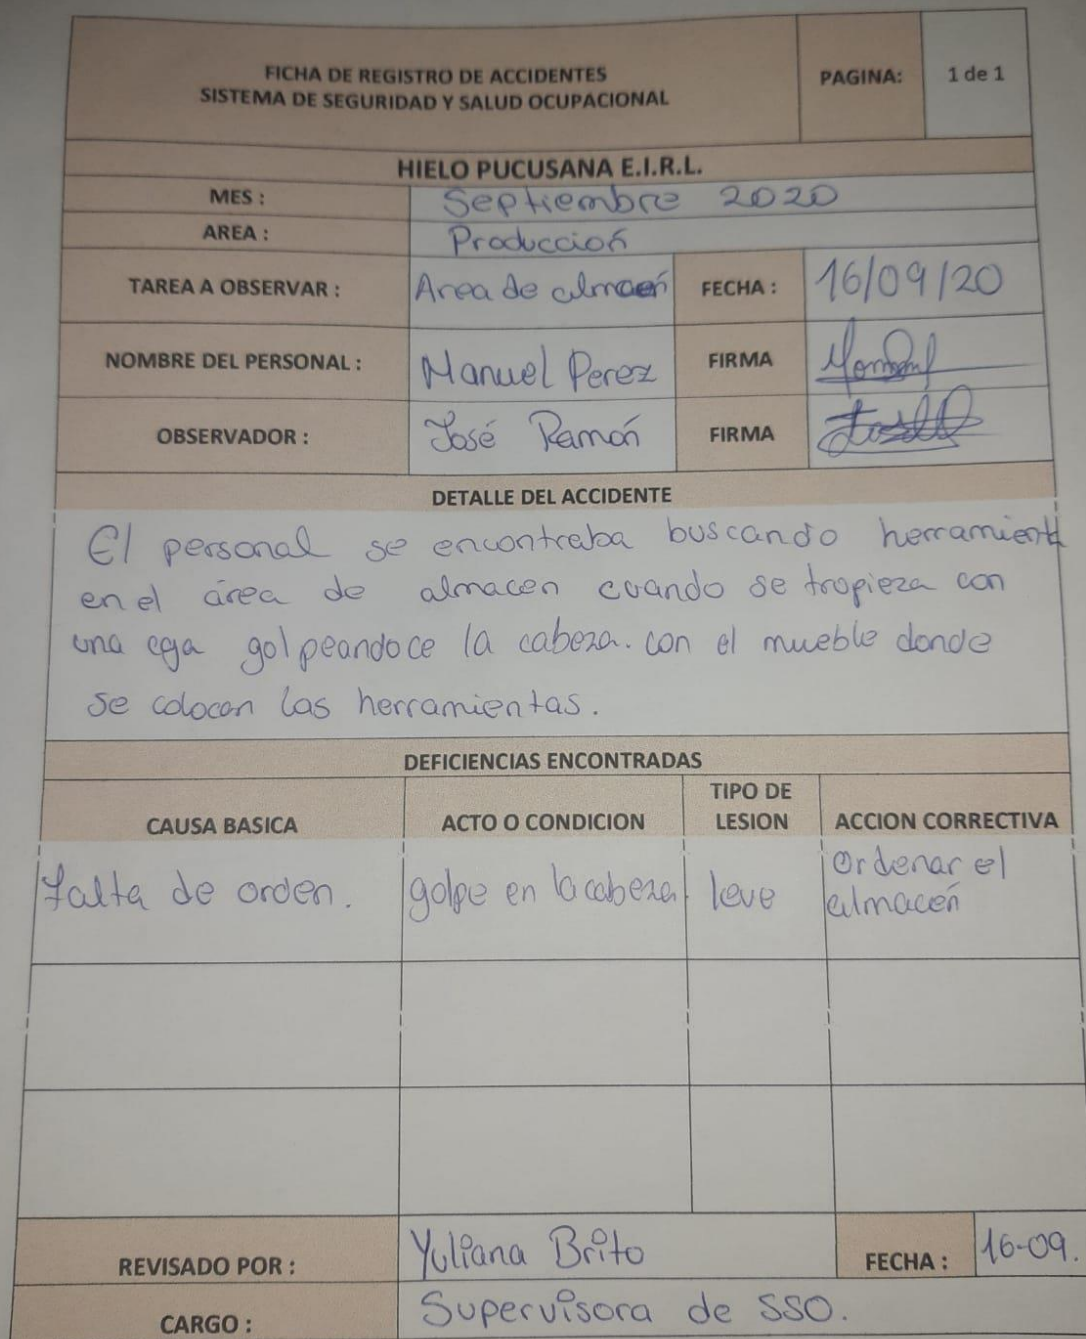 FICHA DE REGISTRO DE ACCIDENTES
SISTEMA DE SEGURIDAD Y SALUD OCUPACIONAL
PAGINA: 1 de 1
HIELO PUCUSANA E.I.R.L.
MES : Septiembre 2020
AREA : Producción
TAREA A OBSERVAR : Area de almacén FECHA : 16/09/20
NOMBRE DEL PERSONAL : Manuel Perez FIRMA
OBSERVADOR : José Ramón FIRMA
DETALLE DEL ACCIDENTE
El personal se encontraba buscando herramient
en el área de almacen cuando se tropieza con
una caja golpeandoce la cabeza. con el mueble donde
se colocan las herramientas.
DEFICIENCIAS ENCONTRADAS
CAUSA BASICA ACTO O CONDICION TIPO DE LESION ACCION CORRECTIVA
falta de orden. golpe en la cabeza leve Ordenar el
almacén
REVISADO POR : Yuliana Brito FECHA : 16-09.
CARGO : Supervisora de SSO.